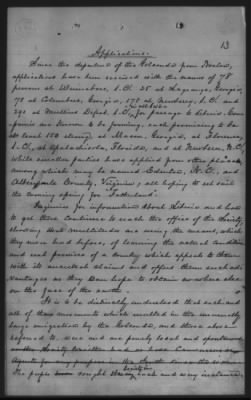 13
Applications.
Since the departure of the Golconda from Boston,
applications have been received with the names of 78
persons at Dunnsboro, S.C. 25 at Lagrange, Georgia,
70 at Columbus, Georgia, 578 at Newberry, S.C. and
290 at Mullins Depot, S.C., for passage to Liberia. Com-
panies are known to be forming, each promising to be
at least 100 strong, at Macon, Georgia, at Florence,
S.C., at Apalachicola, Florida, and at Newbern, N.C.,
while smaller parties have applied from other places,
among which may be named Edenton, N.C., and
Albemarle County, Virginia, all hoping to set sail
the coming spring for "Fatherland."
Inquiries for information about Liberia and how
to get there continue to reach the office of the Society,
showing that multitudes are using the means, which
they never had before, of learning the actual condition
and real promise of a country which appeals to them
with its ancestral claims and offers them such ad-
vantages as they can hope to obtain nowhere else
on the face of the earth.
It is to be distinctly understood that each and
all of these movements which resulted in the recently
large emigration by the Golconda, and those above
referred to, were and are purely local and spontaneous
Agents for any purpose in the South
The people sought through each and every instance